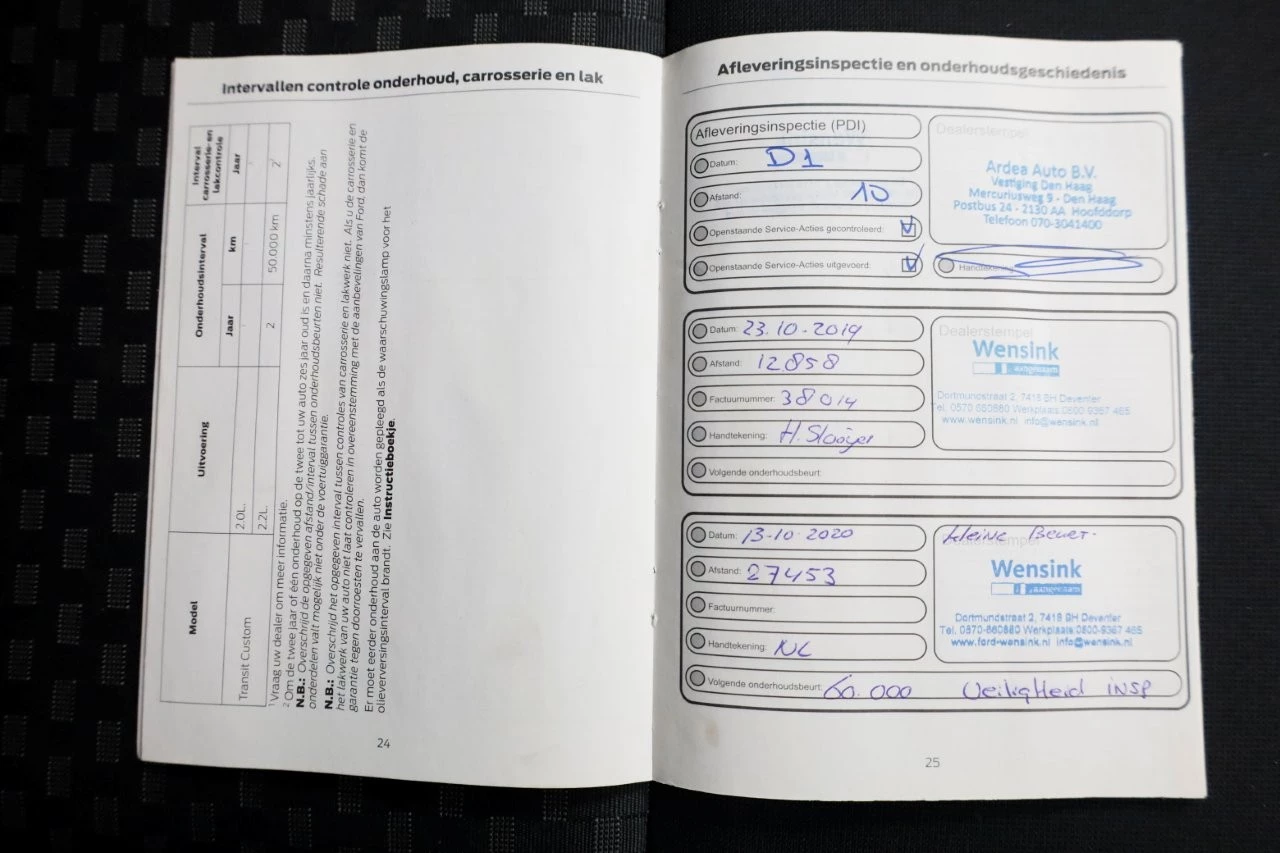 Intervallen controle onderhoud, carrosserie en lak
Model
Uitvoering
Onderhoudsinterval
Interval carrosserie- en lakcontrole
Jaar
km
Jaar
Transit Custom
2.0L.
2.2L.
2
50.000 km
2
1 Vraag uw dealer om meer informatie.
2 Om de twee jaar of één onderhoud op de twee tot uw auto zes jaar oud is en daarna minstens jaarlijks.
N.B.: Overschrijd de opgegeven afstand/interval tussen onderhoudsbeurten niet. Resulterende schade aan
onderdelen valt mogelijk niet onder de voertuiggarantie.
N.B.: Overschrijd het opgegeven interval tussen controles van carrosserie en lakwerk niet. Als u de carrosserie en
het lakwerk van uw auto niet laat controleren in overeenstemming met de aanbevelingen van Ford, dan komt de
garantie tegen doorroesten te vervallen.
Er moet eerder onderhoud aan de auto worden gepleegd als de waarschuwingslamp voor het
olieverversingsinterval brandt. Zie Instructieboekje.
24
Afleveringsinspectie en onderhoudsgeschiedenis
Afleveringsinspectie (PDI)
Datum: D1
Afstand: 10
Openstaande Service-Acties gecontroleerd:
Openstaande Service-Acties uitgevoerd:
Dealerstempel
Ardea Auto B.V.
Vestiging Den Haag
Mercuriusweg 9 - Den Haag
Postbus 24 - 2130 AA Hoofddorp
Telefoon 070-3041400
Handtekening
Datum: 23.10-2019
Afstand: 12858
Factuurnummer: 38014
Handtekening: H. Slooijer
Volgende onderhoudsbeurt:
Dealerstempel
Wensink
aangenaam
Dortmundstraat 2, 7418 BH Deventer
Tel. 0570-660660 Werkplaats:0800-9367 465
www.wensink.nl info@wensink.nl
Datum: 13-10-2020
Afstand: 27453
Factuurnummer:
Handtekening: NL
Volgende onderhoudsbeurt: 60.000 Veiligheid INSP
Kleine Beurt.
Wensink
aangenaam
Dortmundstraat 2, 7418 BH Deventer
Tel. 0570-660660 Werkplaats:0800-9367 465
www.ford-wensink.nl info@wensink.nl
25